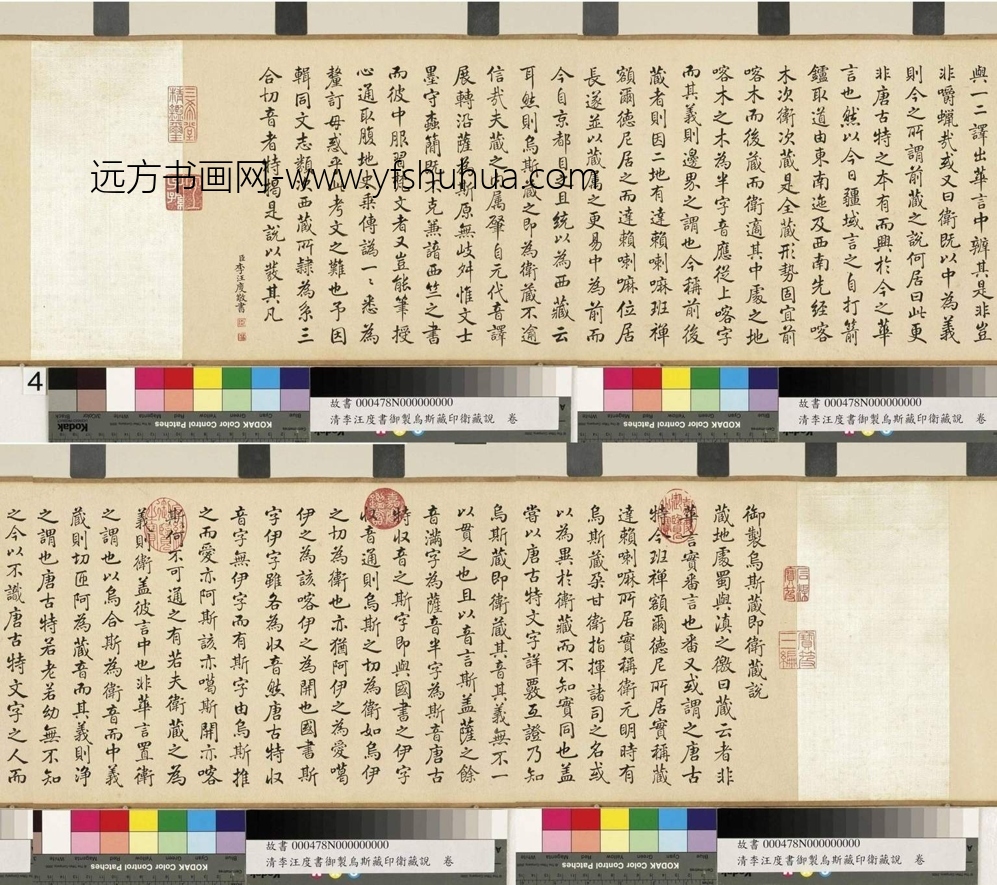 御製烏斯藏即衛藏說
藏地處蜀與滇之徼曰藏云者非
華言實番言也番又或謂之唐古
特今班禪額爾德尼所居實稱藏
達賴喇嘛所居實稱衛元明時有
烏斯藏朶甘衛指揮諸司之名或
以為異於衛藏而不知實同也蓋
嘗以唐古特文字詳覈互證乃知
烏斯藏即衛藏其音其義無不一
以貫之也且以音言斯蓋薩之餘
音滿字為薩音半字為斯音唐古
特収音之斯字即與國書之伊字
収音通則烏斯之切為衛如烏伊
之切為衛也亦猶阿伊之為愛噶
伊之為該喀伊之為開也國書斯
字伊字雖名為収音然唐古特収
音字無伊字而有斯字由烏斯推
之而愛亦阿斯該亦噶斯開亦喀
斯何不可通之有若夫衛藏之為
義則衛蓋彼言中也非華言置衛
之謂也以烏合斯為衛音而中義
藏則切匝阿為藏音而其義則淨
之謂也唐古特若老若幼無不知
之今以不識唐古特文字之人而
與一二譯出華言中辨其是非豈
非嚼蠟哉或又曰衛既以中為義
則今之所謂前藏之說何居曰此更
非唐古特之本有而興於今之華
言也然以今日疆域言之自打箭
鑪取道由東南迤及西南先經喀
木次衛次藏是全藏形勢固宜前
喀木而後藏而衛適其中處之地
喀木之木為半字音應從上喀字
而其義則邊界之謂也今稱前後
藏者則因二地有達賴喇嘛班禪
額爾德尼居之而達賴喇嘛位居
長遂並以藏屬之更易中為前而
今自京都目且統以為西藏云
耳然則烏斯藏之即為衛藏不逾
信哉夫藏之內屬肇自元代音譯
展轉沿薩為斯原無歧舛惟文士
墨守蠹簡既克兼諳西竺之書
而彼中服習梵文者又豈能筆授
心通取腹地史乘傳譌一一悉為
釐訂毋惑乎此考文之難也予因
輯同文志類次西藏所隸為系三
合切音者特揭是說以發其凡
臣李汪度敬書
远方书画网-www.yfshuhua.com
4
故書 000478N000000000
清李汪度書御製烏斯藏印衛藏說 卷
故書 000478N000000000
清李汪度書御製烏斯藏印衛藏說 卷
故書 000478N000000000
清李汪度書御製烏斯藏印衛藏說 卷
故書 000478N000000000
清李汪度書御製烏斯藏印衛藏說 卷
Kodak
KODAK Color Control Patches
KODAK Color Control Patches
KODAK Color Control Patches
KODAK Color Control Patches